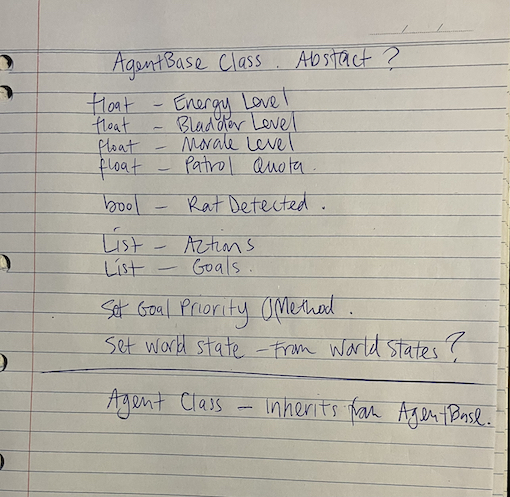 AgentBase Class. Abstact ?
float - Energy Level
float - Bladder Level
float - Morale Level
float - Patrol Quota.
bool - Rat Detected.
List - Actions
List - Goals.
Set Goal Priority ()Method.
Set world state - From World States ?
Agent Class - Inherits from AgentBase.